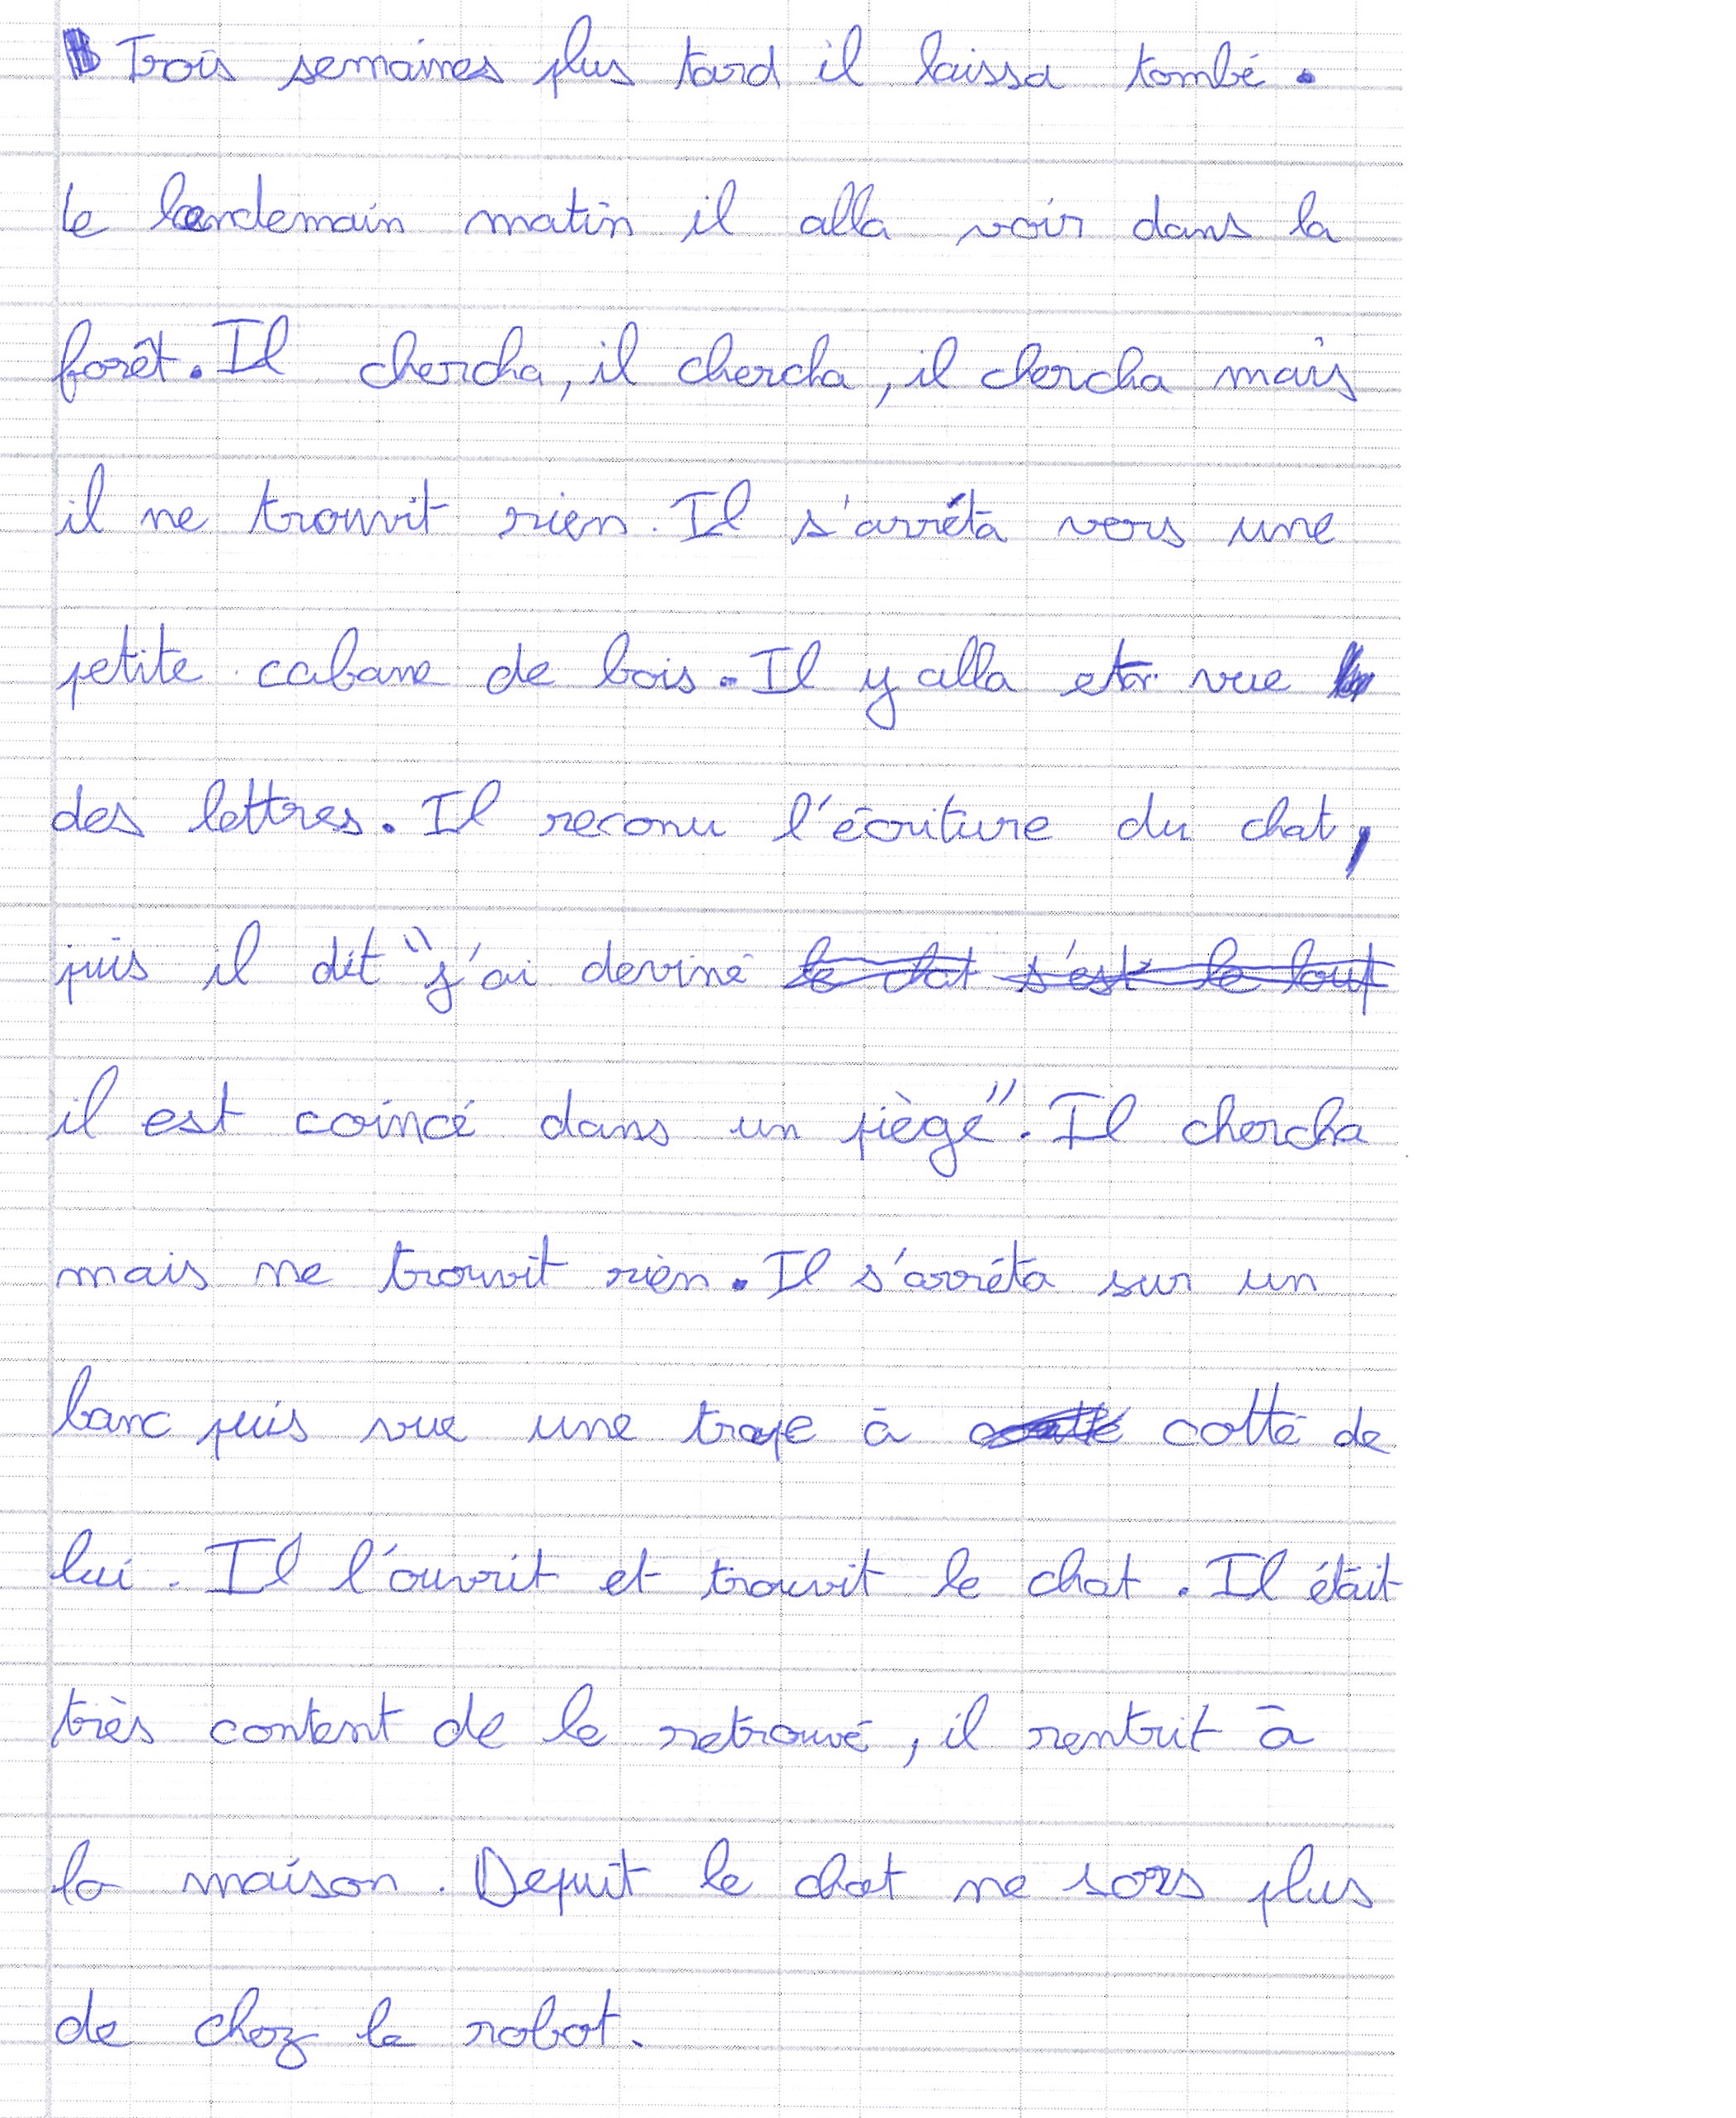 Trois semaines plus tard il laissa tombé.
Le lendemain matin il alla voir dans la
forêt. Il chercha, il chercha, il chercha mais
il ne trouvit rien. Il s'arréta vers une
petite cabane de bois. Il y alla et vue
des lettres. Il reconu l'écriture du chat,
puis il dit "j'ai deviné le chat s'est le louf
il est coincé dans un piège". Il chercha
mais ne trouvit rien. Il s'arréta sur un
banc puis vue une trape à cotté de
lui. Il l'ouvrit et trouvit le chat. Il était
très content de le retrouvé, il rentrit à
la maison. Depuit le chat ne sors plus
de chez le robot.